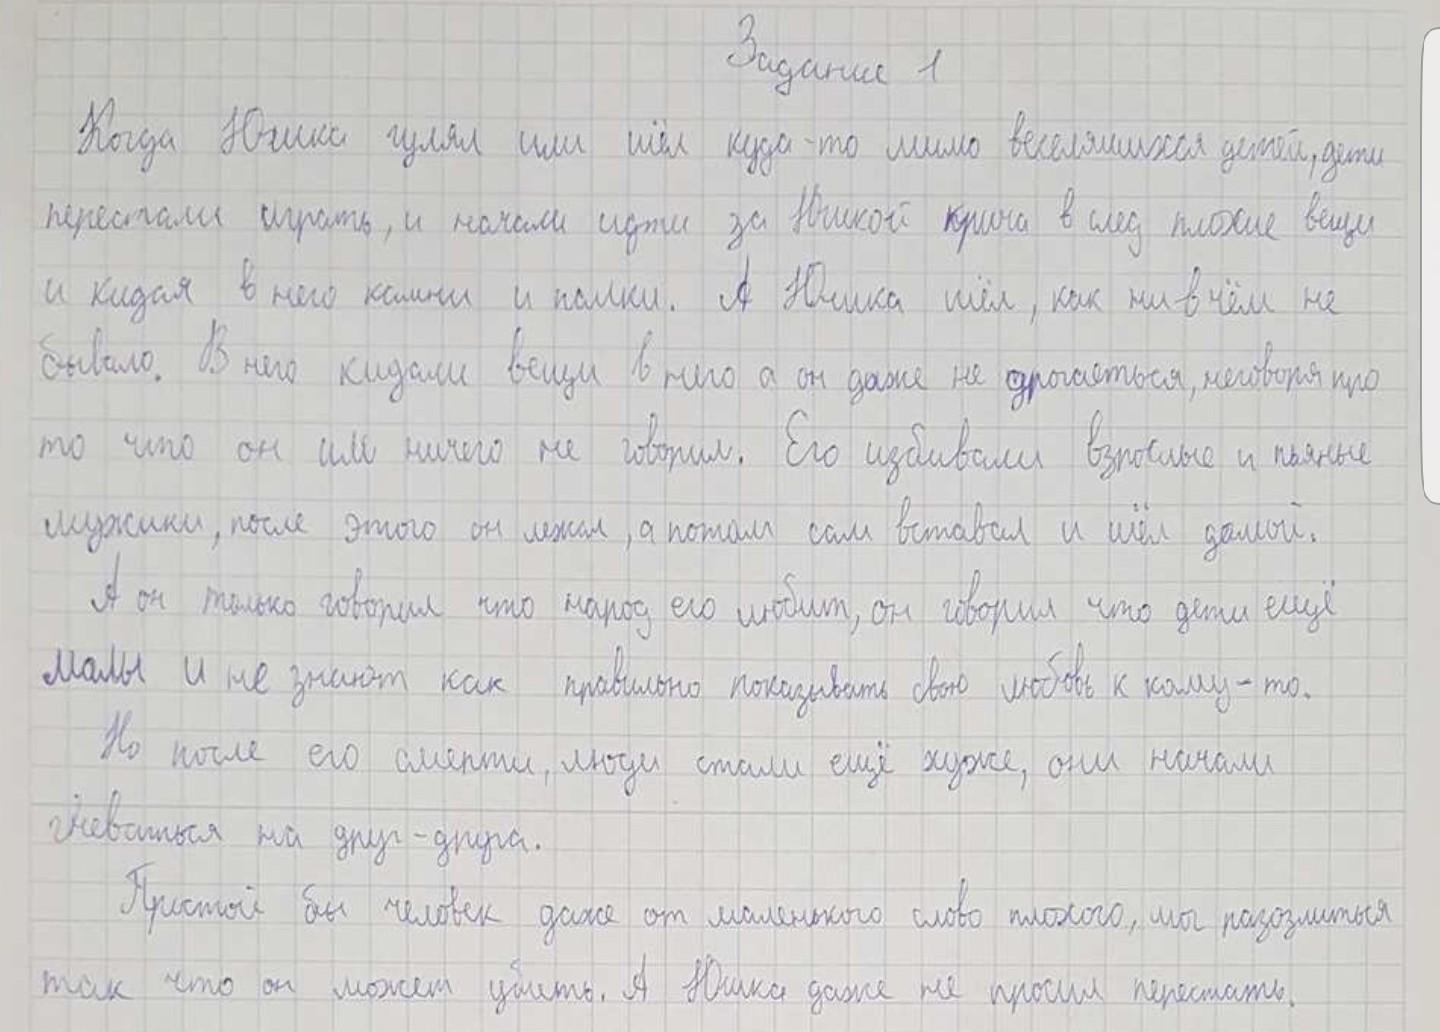 Задание 1
Когда Юшка гулял или шёл куда-то мимо веселяшихся детей, дети
перестали играть, и начали идти за Юшкой крича в след плохие вещи
и кидая в него камни и палки. А Юшка шёл, как ни в чём не
бывало. В него кидали вещи в него а он даже не дрогаеться, неговоря про
то что он им ничего не говорил. Его избивали взрослые и пьяные
мужики, после этого он лежал, а потом сам вставал и шёл домой.
А он только говорил что народ его любит, он говорил что дети ещё
малы и не знают как правильно показывать свою любовь к кому-то.
Но после его смерти, люди стали ещё хуже, они начали
гневаться на друг-друга.
Простой бы человек даже от маленького слово плохого, мог разозлиться
так что он может убить. А Юшка даже не просил перестать.